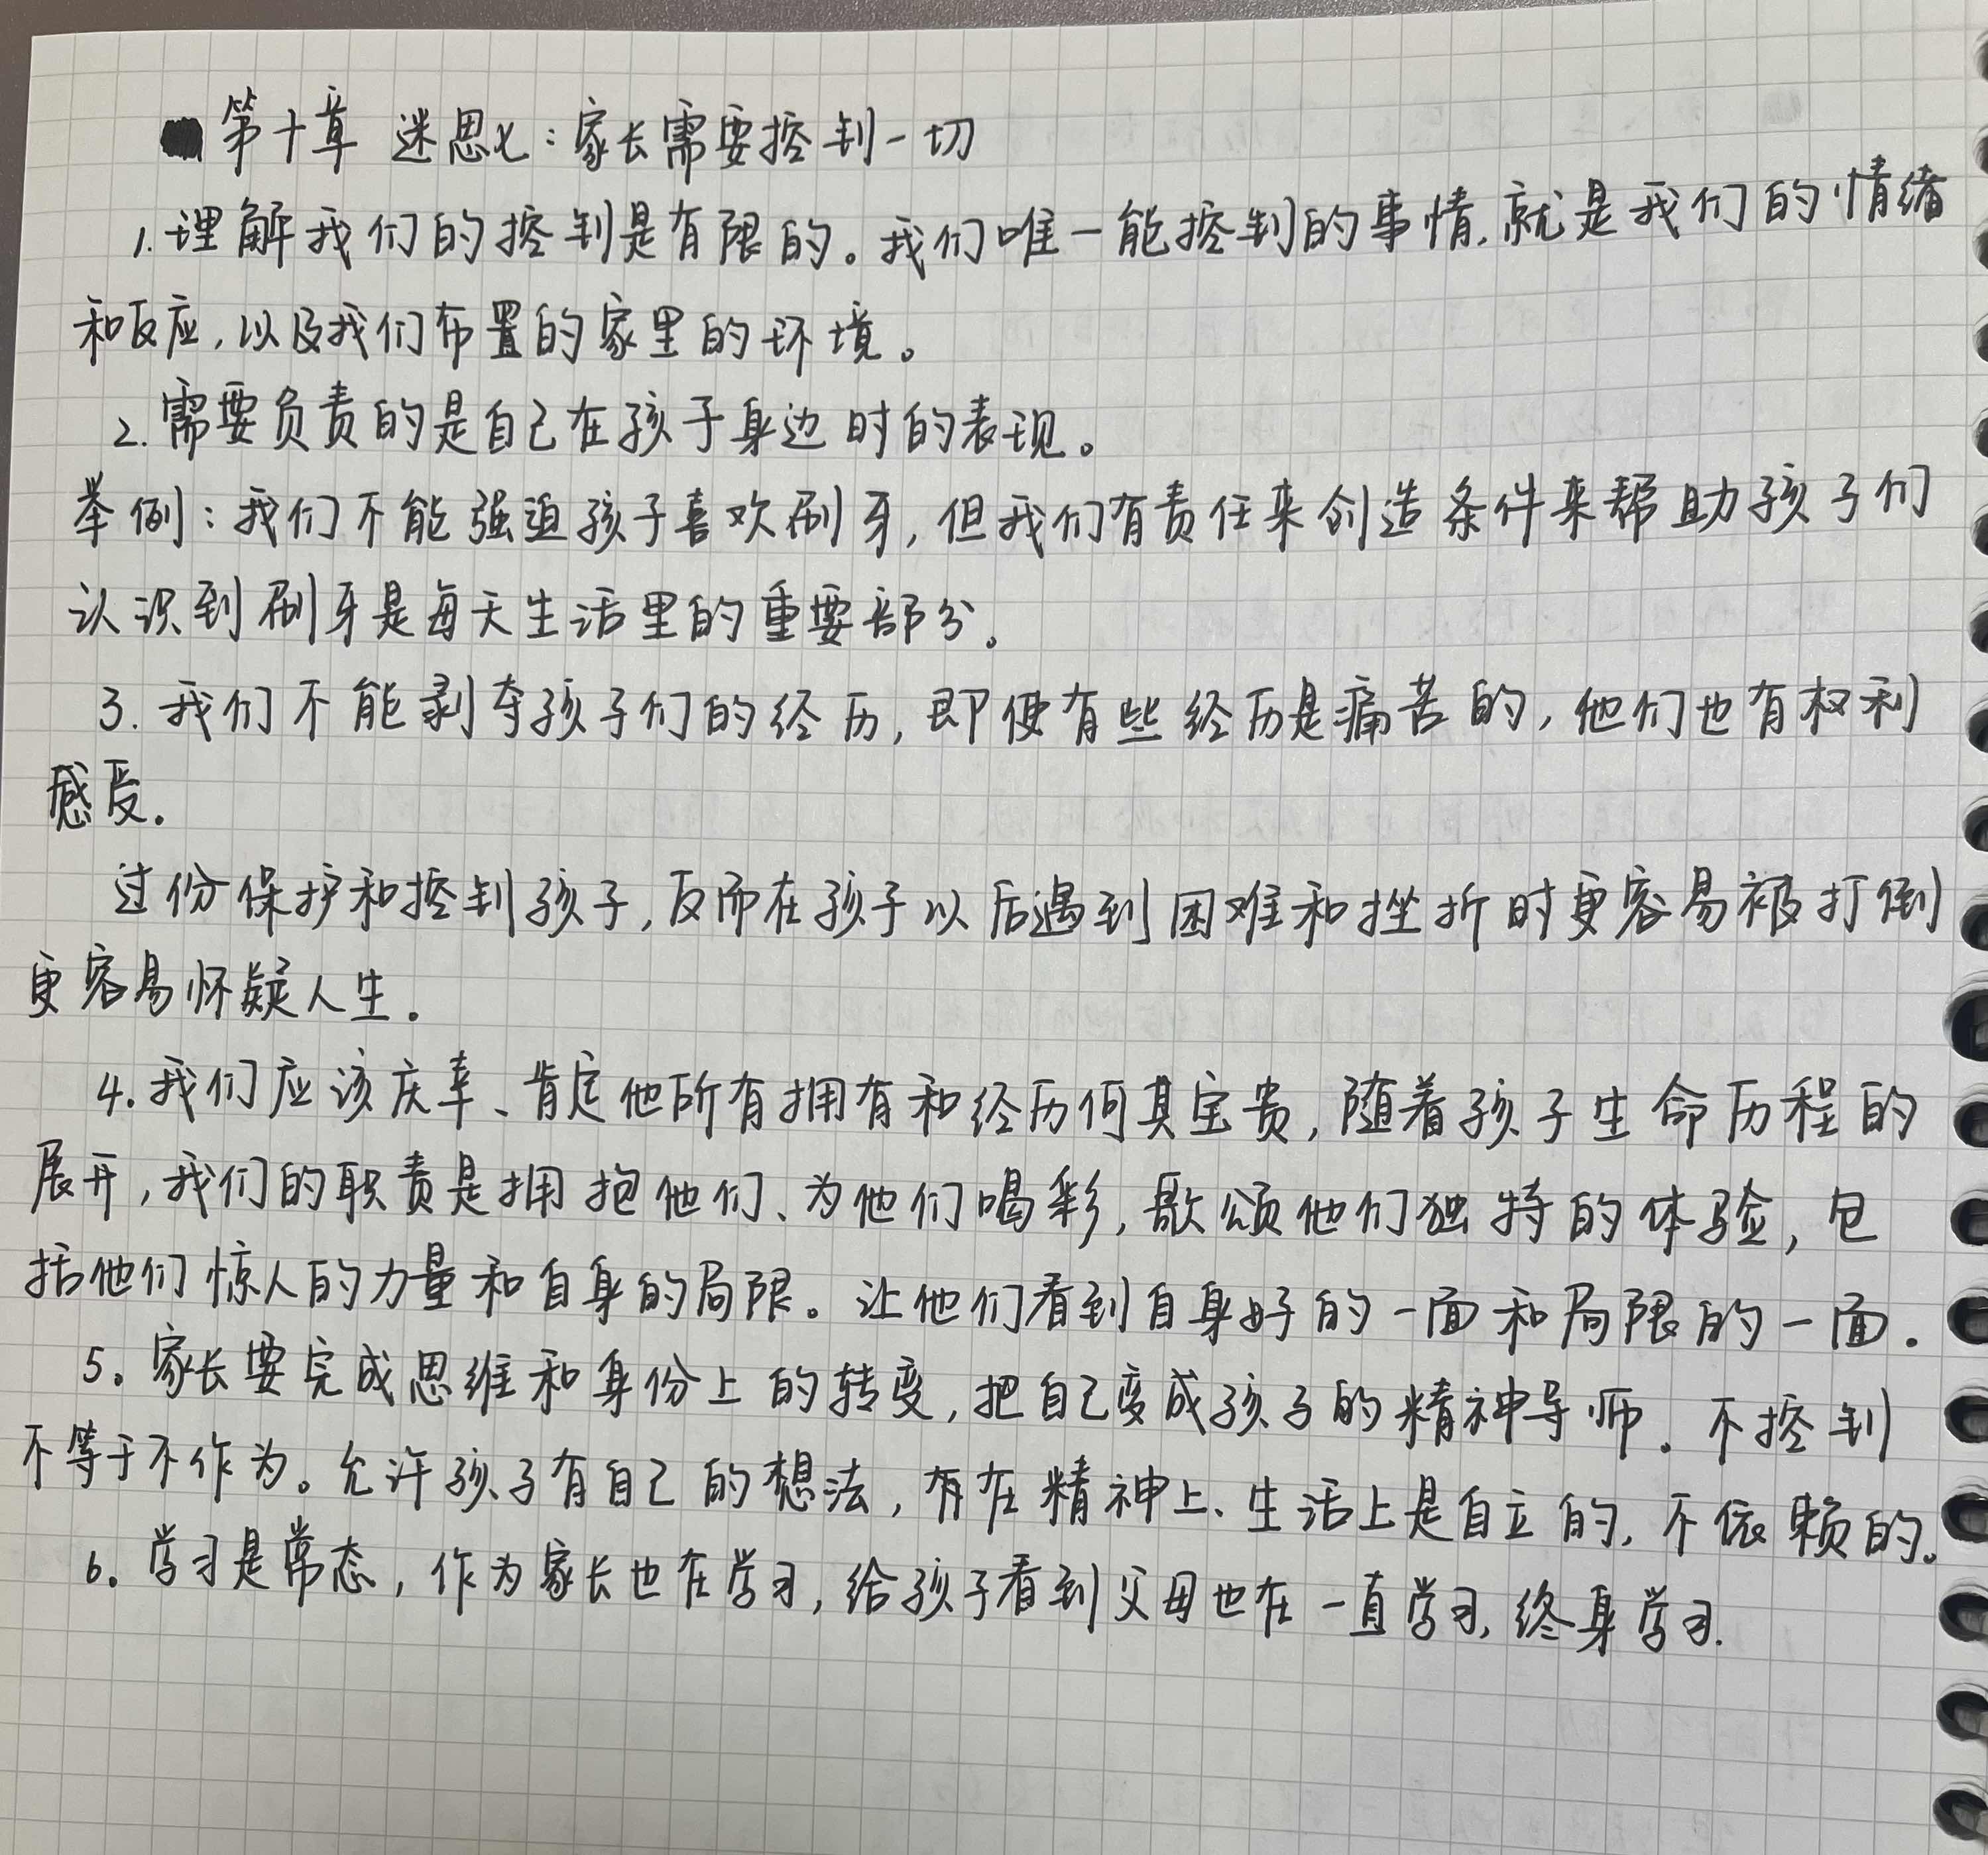 第十章 迷思七：家长需要控制一切
1.理解我们的控制是有限的。我们唯一能控制的事情,就是我们的情绪
和反应,以及我们布置的家里的环境。
2.需要负责的是自己在孩子身边时的表现。
举例：我们不能强迫孩子喜欢刷牙,但我们有责任来创造条件来帮助孩子们
认识到刷牙是每天生活里的重要部分。
3.我们不能剥夺孩子们的经历,即便有些经历是痛苦的,他们也有权利
感受.
过份保护和控制孩子,反而在孩子以后遇到困难和挫折时更容易被打倒
更容易怀疑人生.
4.我们应该庆幸、肯定他所有拥有和经历何其宝贵,随着孩子生命历程的
展开,我们的职责是拥抱他们、为他们喝彩,歌颂他们独特的体验,包
括他们惊人的力量和自身的局限。让他们看到自身好的一面和局限的一面.
5。家长要完成思维和身份上的转变,把自己变成孩子的精神导师。不控制
不等于不作为。允许孩子有自己的想法,有在精神上、生活上是自立的,不依赖的。
6。学习是常态,作为家长也在学习,给孩子看到父母也在一直学习,终身学习.